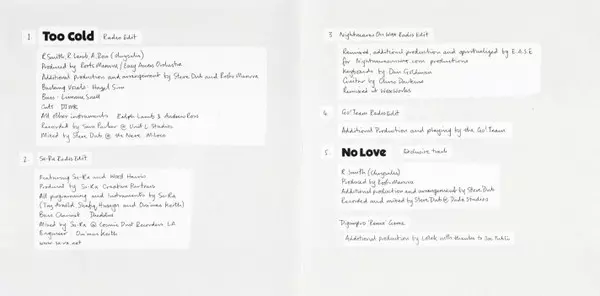 1. Too Cold Radio Edit
R. Smith, R. Lamb, A. Ross (Chrysalis)
Produced by Roots Manuva / Easy Access Orchestra
Additional production and arrangement by Steve Dub and Roots Manuva
Backing Vocals - Hazel Sim
Bass -
Cuts DJ MK
All other instruments Ralph Lamb & Andrew Ross
Recorded by Sam Parker @ Unit L Studios
Mixed by Steve Dub @ the Nave
2. Sa-Ra Radio Edit
Featuring Sa-Ra and
Produced by Sa-Ra Creative Partners
All programming and instruments by Sa-Ra
(Taz Arnold, Shafiq Husayn and Om'mas Keith)
Bass Clarinet Thaddeus
Mixed by Sa-Ra @ Cosmic Dust Recorders LA
Engineer Om'mas Keith
www.sa-ra.net
3. Nightmares On Wax Radio Edit
Remixed, additional production and spiritualized by E.A.S.E
for Nightmaresonwax.com productions
Keyboards by Dan Goldman
Guitar by Chris Dawkins
Remixed at WaxWorks
4. Go! Team Radio Edit
Additional Production and playing by the Go! Team
5. No Love Exclusive track
R. Smith (Chrysalis)
Produced by Roots Manuva
Additional production and arrangement by Steve Dub
Recorded and mixed by Steve Dub @ Dada Studios
Remix
Additional production by with thanks to